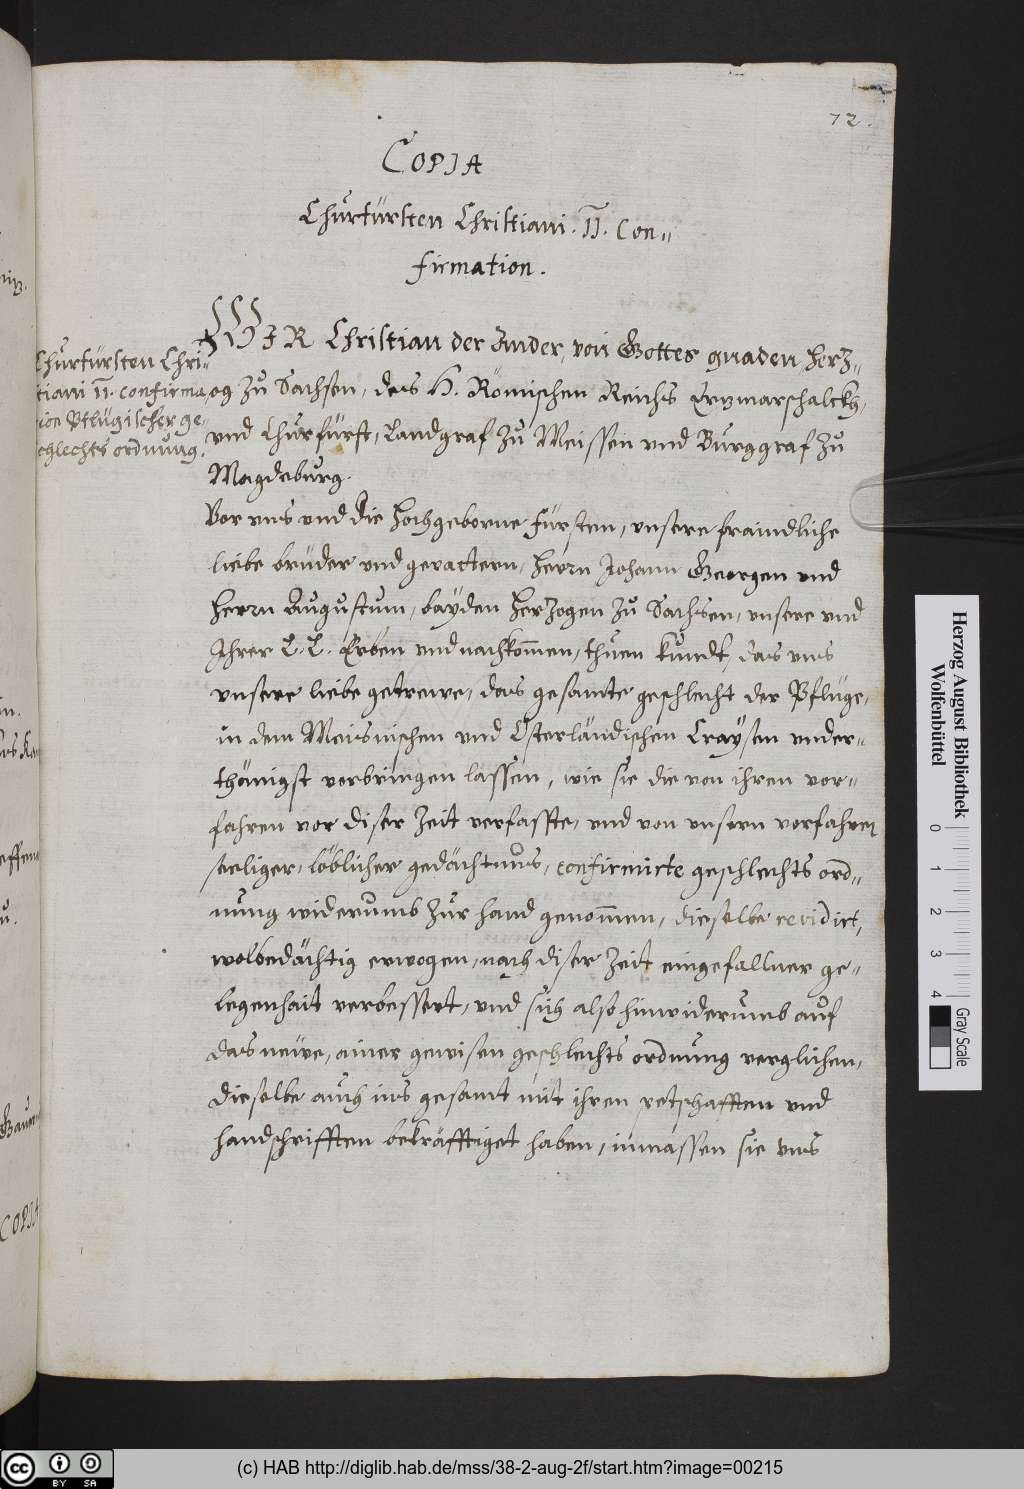 72.
COPIA
Churfürsten Christiani. II. Con„
firmation.
Churfürsten Chri„
stiani II. confirma„
tion Pflügischer ge„
schlechts ordnung.
WIR Christian der Ander, von Gottes gnaden, Herz„
og zu Sachsen, des H. Römischen Reichs Erzmarschalckh,
und Churfürst, Landgraf zu Meissen und Burggraf zu
Magdeburg.
Vor uns und die hochgeborne fürsten, unsere fraindliche
liebe brüder und gevattern, herrn Johann Georgen und
herrn Augustum, bayden Herzogen zu Sachsen, unsere und
Ihrer L. L. Erben und nachkom̅en, thuen kundt, das uns
unsere liebe getrewe, das gesamte geschlecht der Pflüge,
in dem Meisnischen und Osterländischen Craysen under„
thänigst vorbringen lassen, wie sie die von ihren vor„
fahren vor diser zeit verfasste, und von unsern vorfahren
seeliger, löblicher gedächtnus, confirmirte geschlechts ord„
nung widerumb zur hand genom̅en, dieselbe revidirt,
wolbedächtig erwogen, nach diser zeit eingefallner ge„
legenhait verbessert, und sich also hinwiderumb auf
das neüe, ainer gewisen geschlechts ordnung verglichen,
dieselbe auch ins gesamt mit ihren petschafften und
handschrifften bekräfftiget haben, inmassen sie uns
COPIA
Herzog August Bibliothek
Wolfenbüttel
0 1 2 3 4
Gray Scale
cc BY SA
(c) HAB http://diglib.hab.de/mss/38-2-aug-2f/start.htm?image=00215